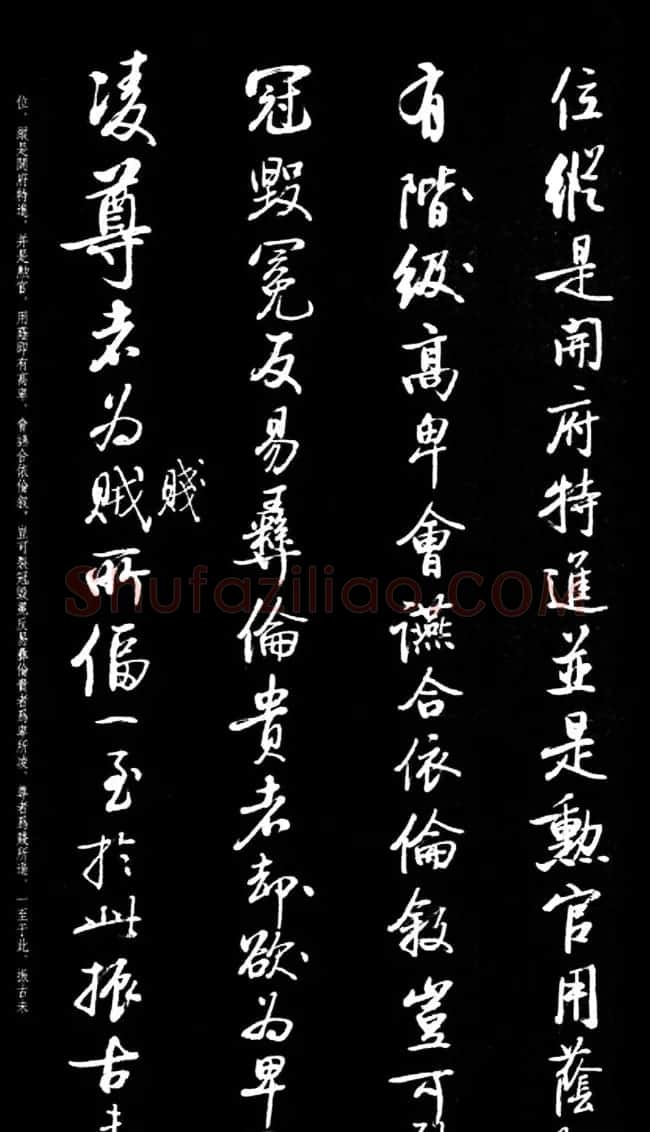 位縱是開府特進並是勳官用蔭
有階級高卑會讌合依倫叙豈可
冠毀冕反易彝倫貴者却欲為卑
凌尊者為賊所偪一至於此振古未
賤
位、縱是開府特進、并是勲官、用蔭即有高卑、會讌合依倫叙、豈可裂冠毀冕反易彝倫貴者爲卑所凌、尊者爲賤所逼、一至于此、振古未
Shufaziliao.COM